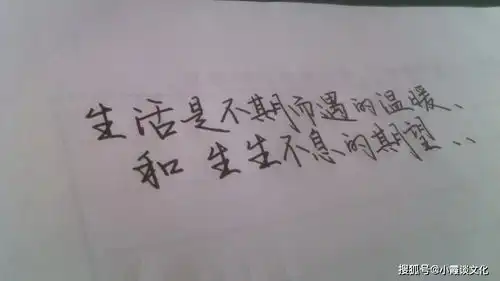 生活是不期而遇的温暖、
和生生不息的期望..
搜狐号@小霞谈文化